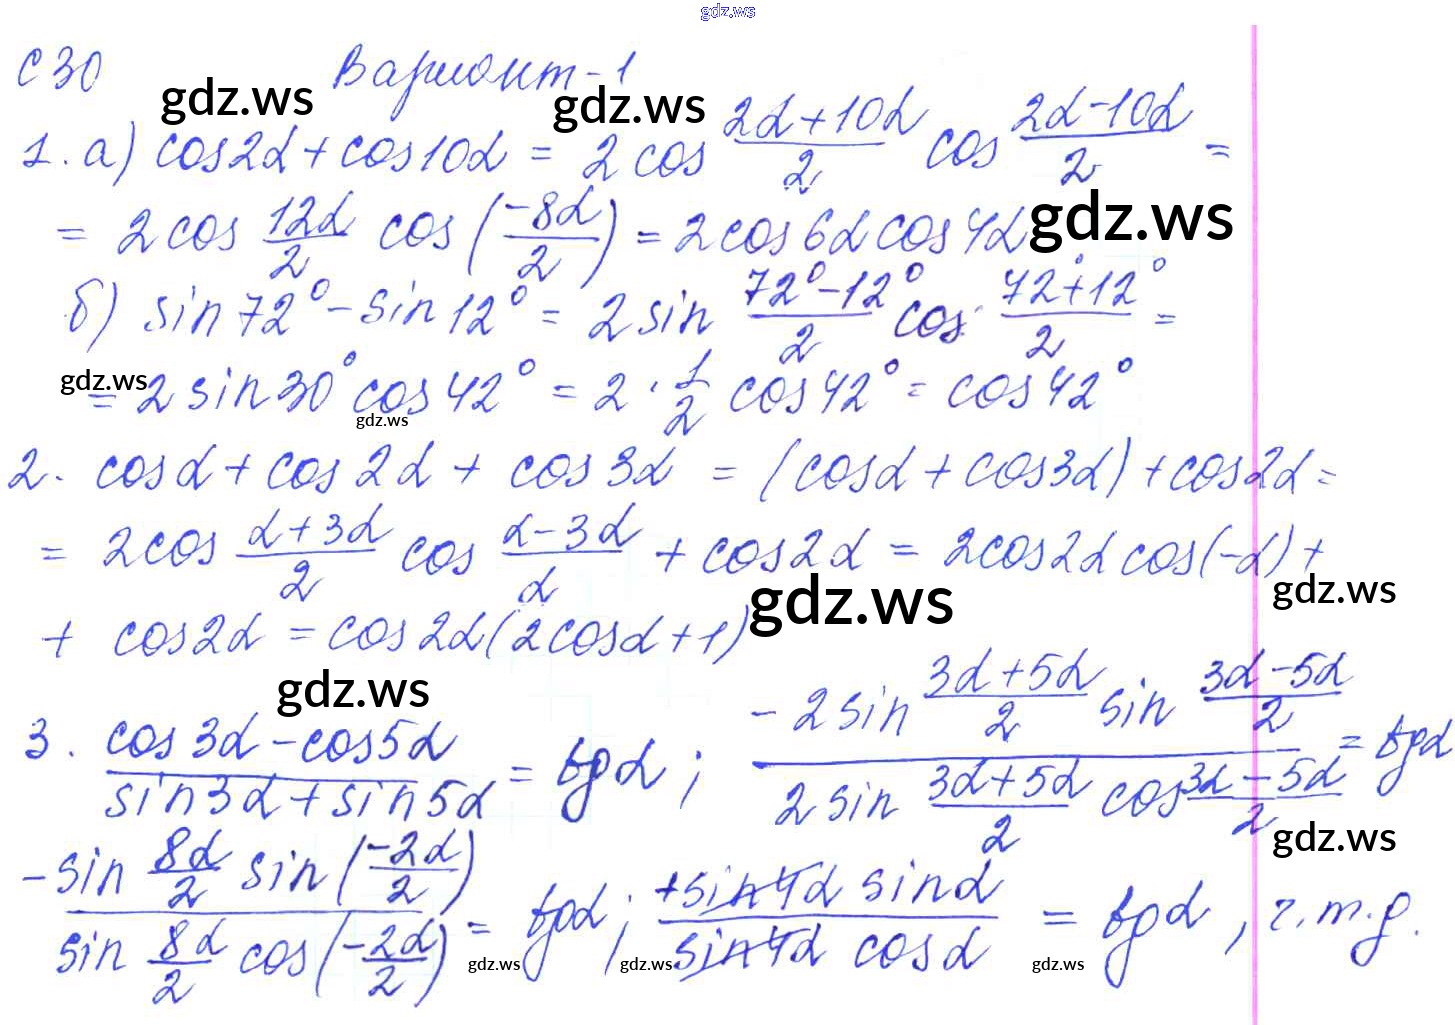 gdz.ws
С 30 Вариант-1
gdz.ws gdz.ws
1. а) cos2α + cos10α = 2 cos (2α+10α)/2 cos (2α-10α)/2 =
= 2 cos 12α/2 cos (-8α/2) = 2 cos 6α cos 4α gdz.ws
б) sin 72° - sin 12° = 2 sin (72°-12°)/2 cos (72°+12°)/2 =
gdz.ws = 2 sin 30° cos 42° = 2 · 1/2 cos 42° = cos 42°
gdz.ws
2. cos α + cos 2α + cos 3α = (cos α + cos 3α) + cos 2α =
= 2 cos (α+3α)/2 cos (α-3α)/α + cos 2α = 2 cos 2α cos(-α) +
gdz.ws gdz.ws
+ cos 2α = cos 2α (2 cos α + 1)
gdz.ws
3. (cos 3α - cos 5α)/(sin 3α + sin 5α) = tg α ; (-2 sin (3α+5α)/2 sin (3α-5α)/2)/(2 sin (3α+5α)/2 cos (3α-5α)/2) = tg α
gdz.ws
(-sin 8α/2 sin (-2α/2))/(sin 8α/2 cos (-2α/2)) = tg α ; (+sin 4α sin α)/(sin 4α cos α) = tg α , ч.т.д.
gdz.ws gdz.ws gdz.ws